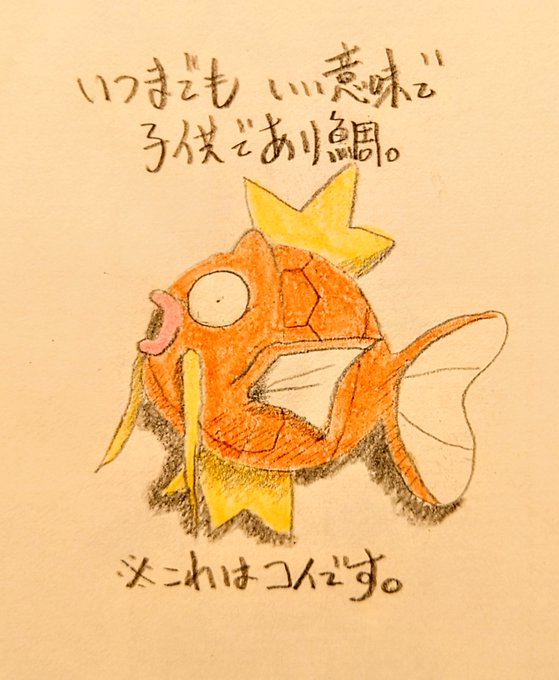 いつまでも いい意味で
子供であり鯛。
※これはコイです。